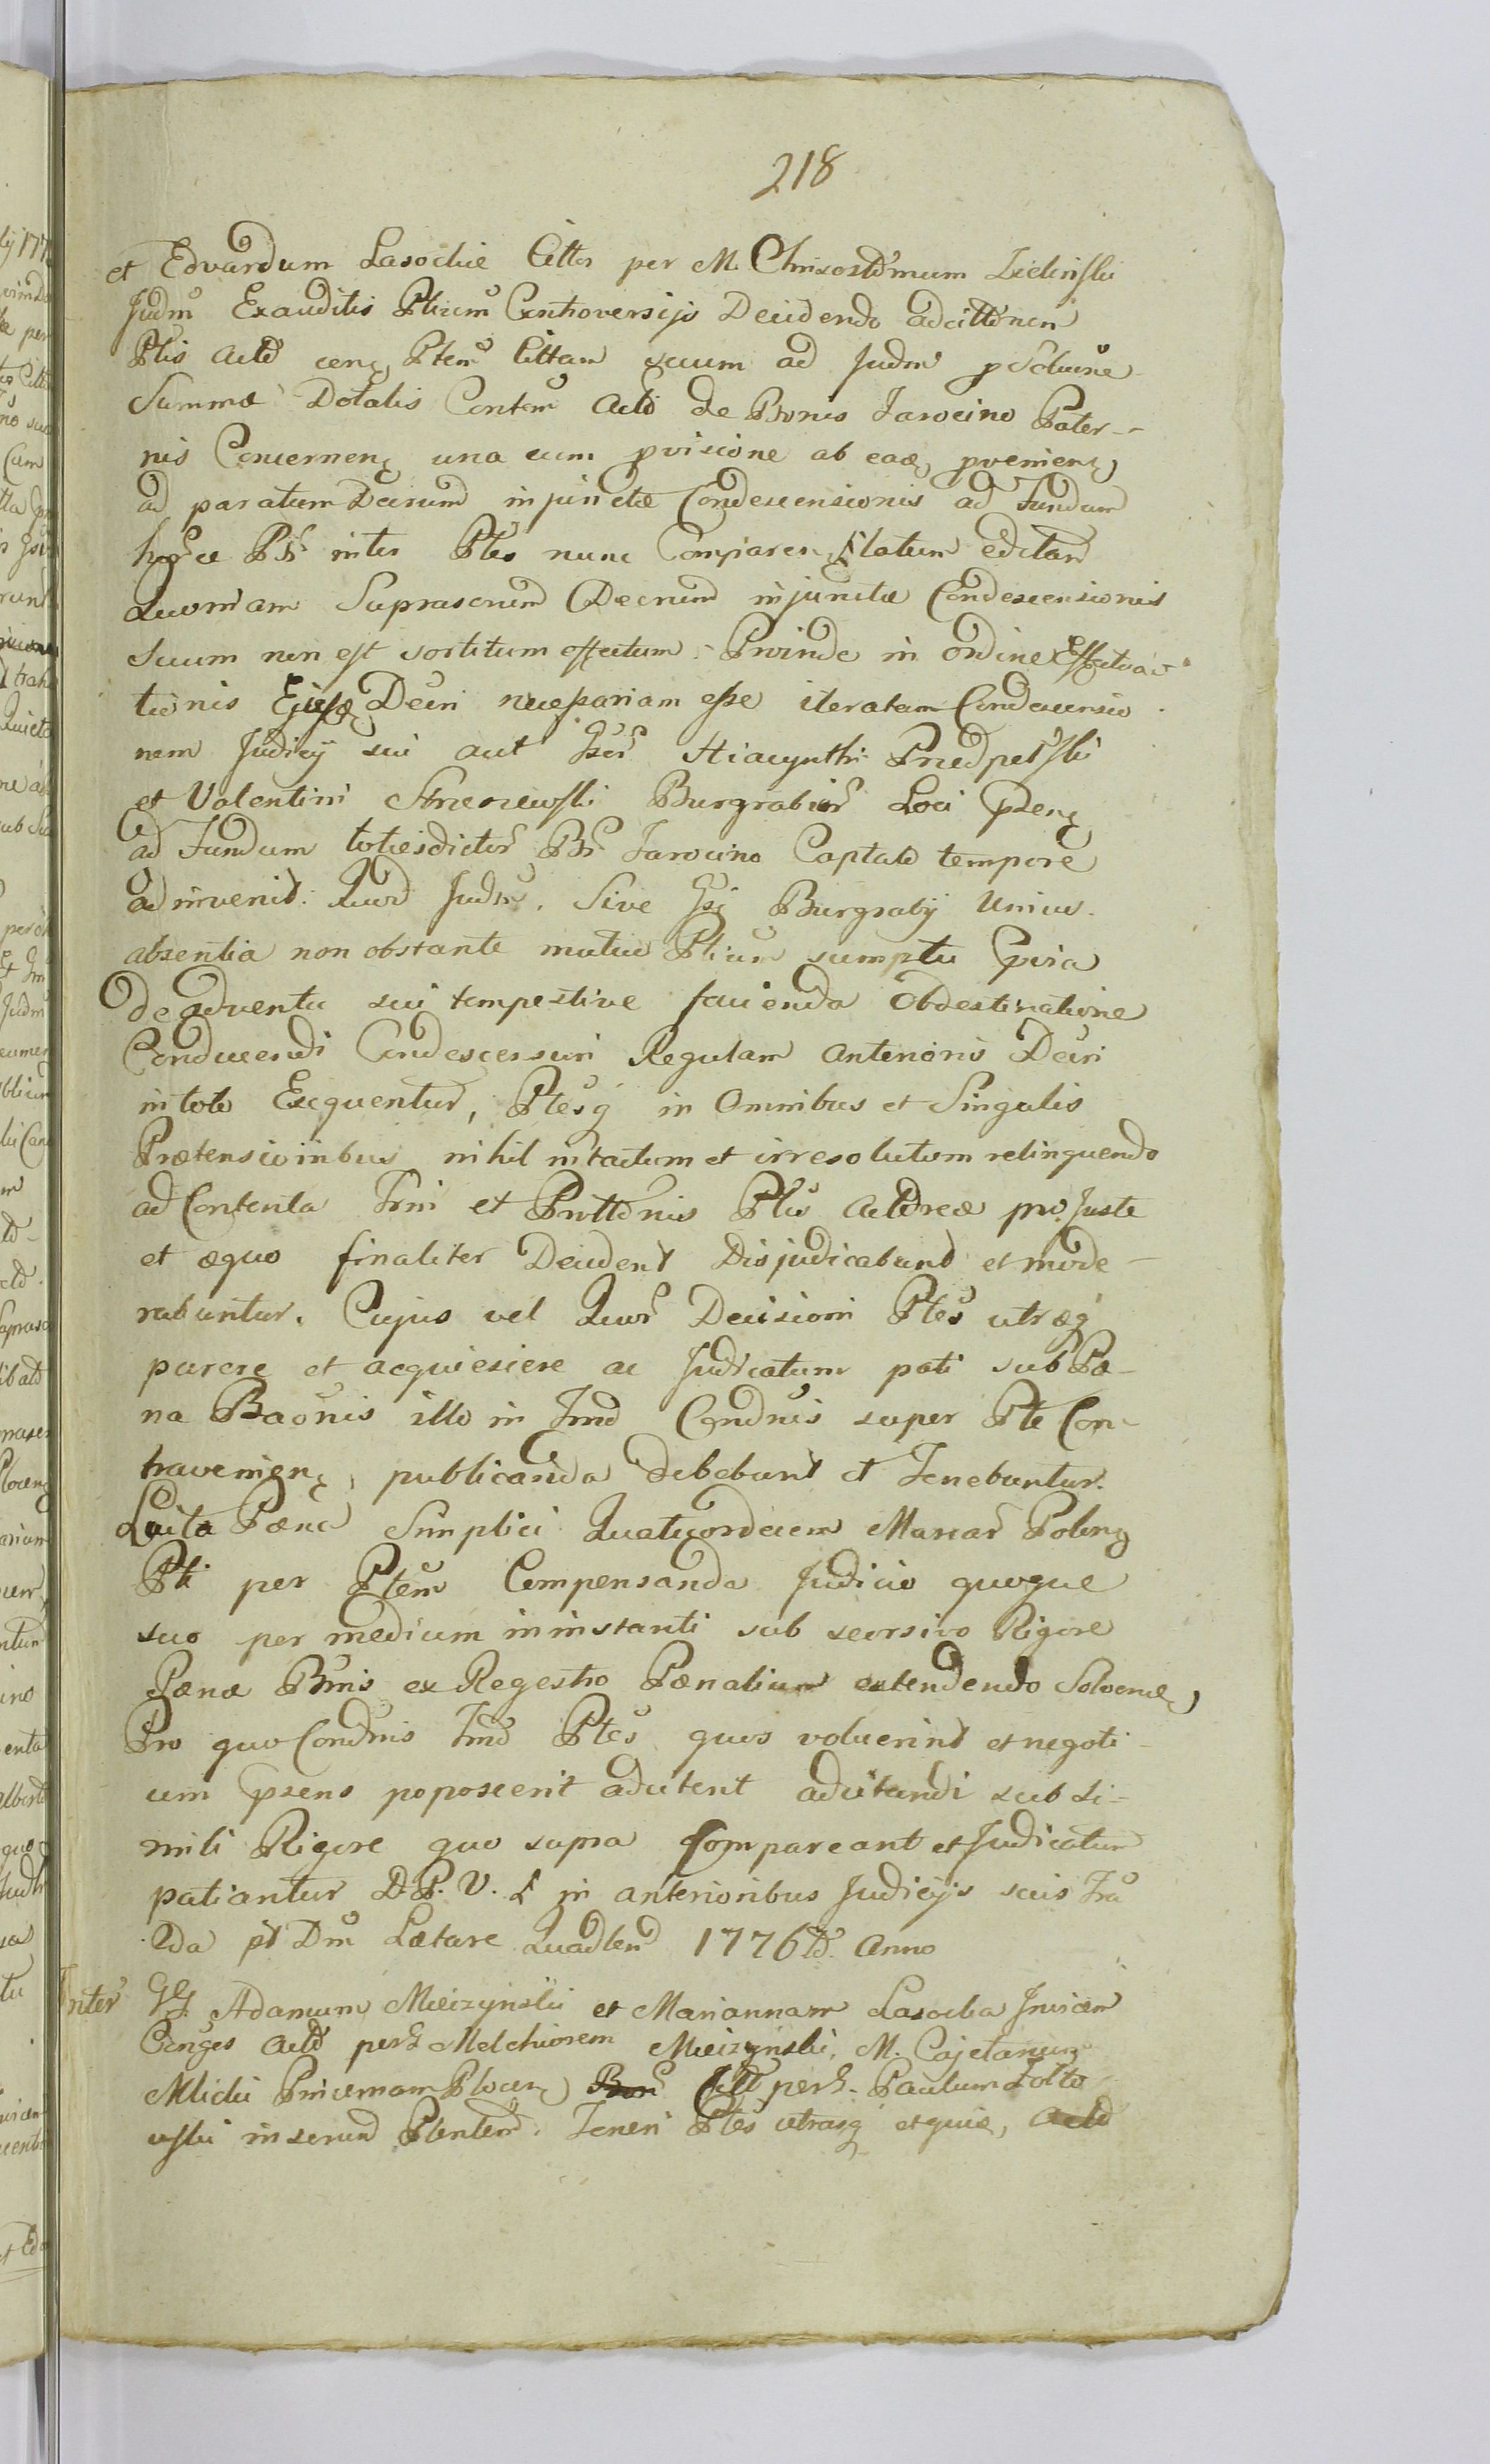 218
et Edvardum Lasockie Cittos per M. Chrisostomum Zielinski
Judm Exauditis Ptium Controversijs Decidendo adcittõnem
Ptis Actõ cenq Ptem Cittam secum ad Judm p Solucine
Summæ Dotalis Contem Actõ de Bonis Jarocino Pater--
nis Concernenq una cum pvisione ab eaq pvenienq
ad paratum Decrum injunctæ Condescensionis ad Fundum
horce Br inter Ptes nunc Comparenq latum editam
Quoniam Suprascrum Decrum injunctæ Condescensionis
Suum non est sortitum effectum. Proinde in ordine Effectua-
tionis Ejusq Decri necessariam esse iteratam Condescensio
nem Judicij sui aut Gsor Hiacynthi Przedpelski
et Valentini Strzeszewski Burgrabior Loci Psenq
ad Fundum totiesdictor Br Jarocino Captato tempore
adinvenit. Quod Judm. Sive Gsi Burgrabij Unius.
absentia non obstante mutuo Ptium sumptu Cpria
de adventu sui tempestive facienda Obdestinatione
Conducendi Condescensuri Regulam Anterioris Decri
in toto Exequentur, Ptesq in Omnibus et Singulis
Prætensionibus nihil intactum et irresolutum relinquendo
ad Contenta Trni et Prottõnis Ptis Actoreæ pro Juste
et æquo finaliter Decident Disjudicabunt et mode-
rabuntur. Cujus vel Quor Decisioni Ptes utræq
parere et acquiescere ac Judicatum pati sub Pæ-
na Baõnis illo in Tmo Condnis super Pte Con-
travenienq, publicanda debebunt et Tenebuntur.
Luita Pæna Simplici Quatuordecim Marcar Polonq
Pti per Ptem Compensanda Judicio quoque
suo per medium in instanti sub seorsivo Rigore
Pænæ Bnis ex Regestro Pænalium extendendo Solvenq
Pro quo Condnis Tmo Ptes quos voluerint et negoti-
um psens poposcerit adcitent adcitandi sub si-
mili Rigore quo supra Compareant et Judicatum
patiantur D. P. V. L in anterioribus Judicijs suis Fra
2da pt Dm Lætare Quadlem 1776to Anno
Inter GG. Adamum Mieczynski et Mariannam Lasocka Invicem
Conges Actõ per G Melchiorem Mieczynski, M. Cajetanum
Mlicki Pincernam Plocenq Citt per G. Paulum Zolto
wski inserund Ptentem. Teneri Ptes utrasq et quia, Actõ